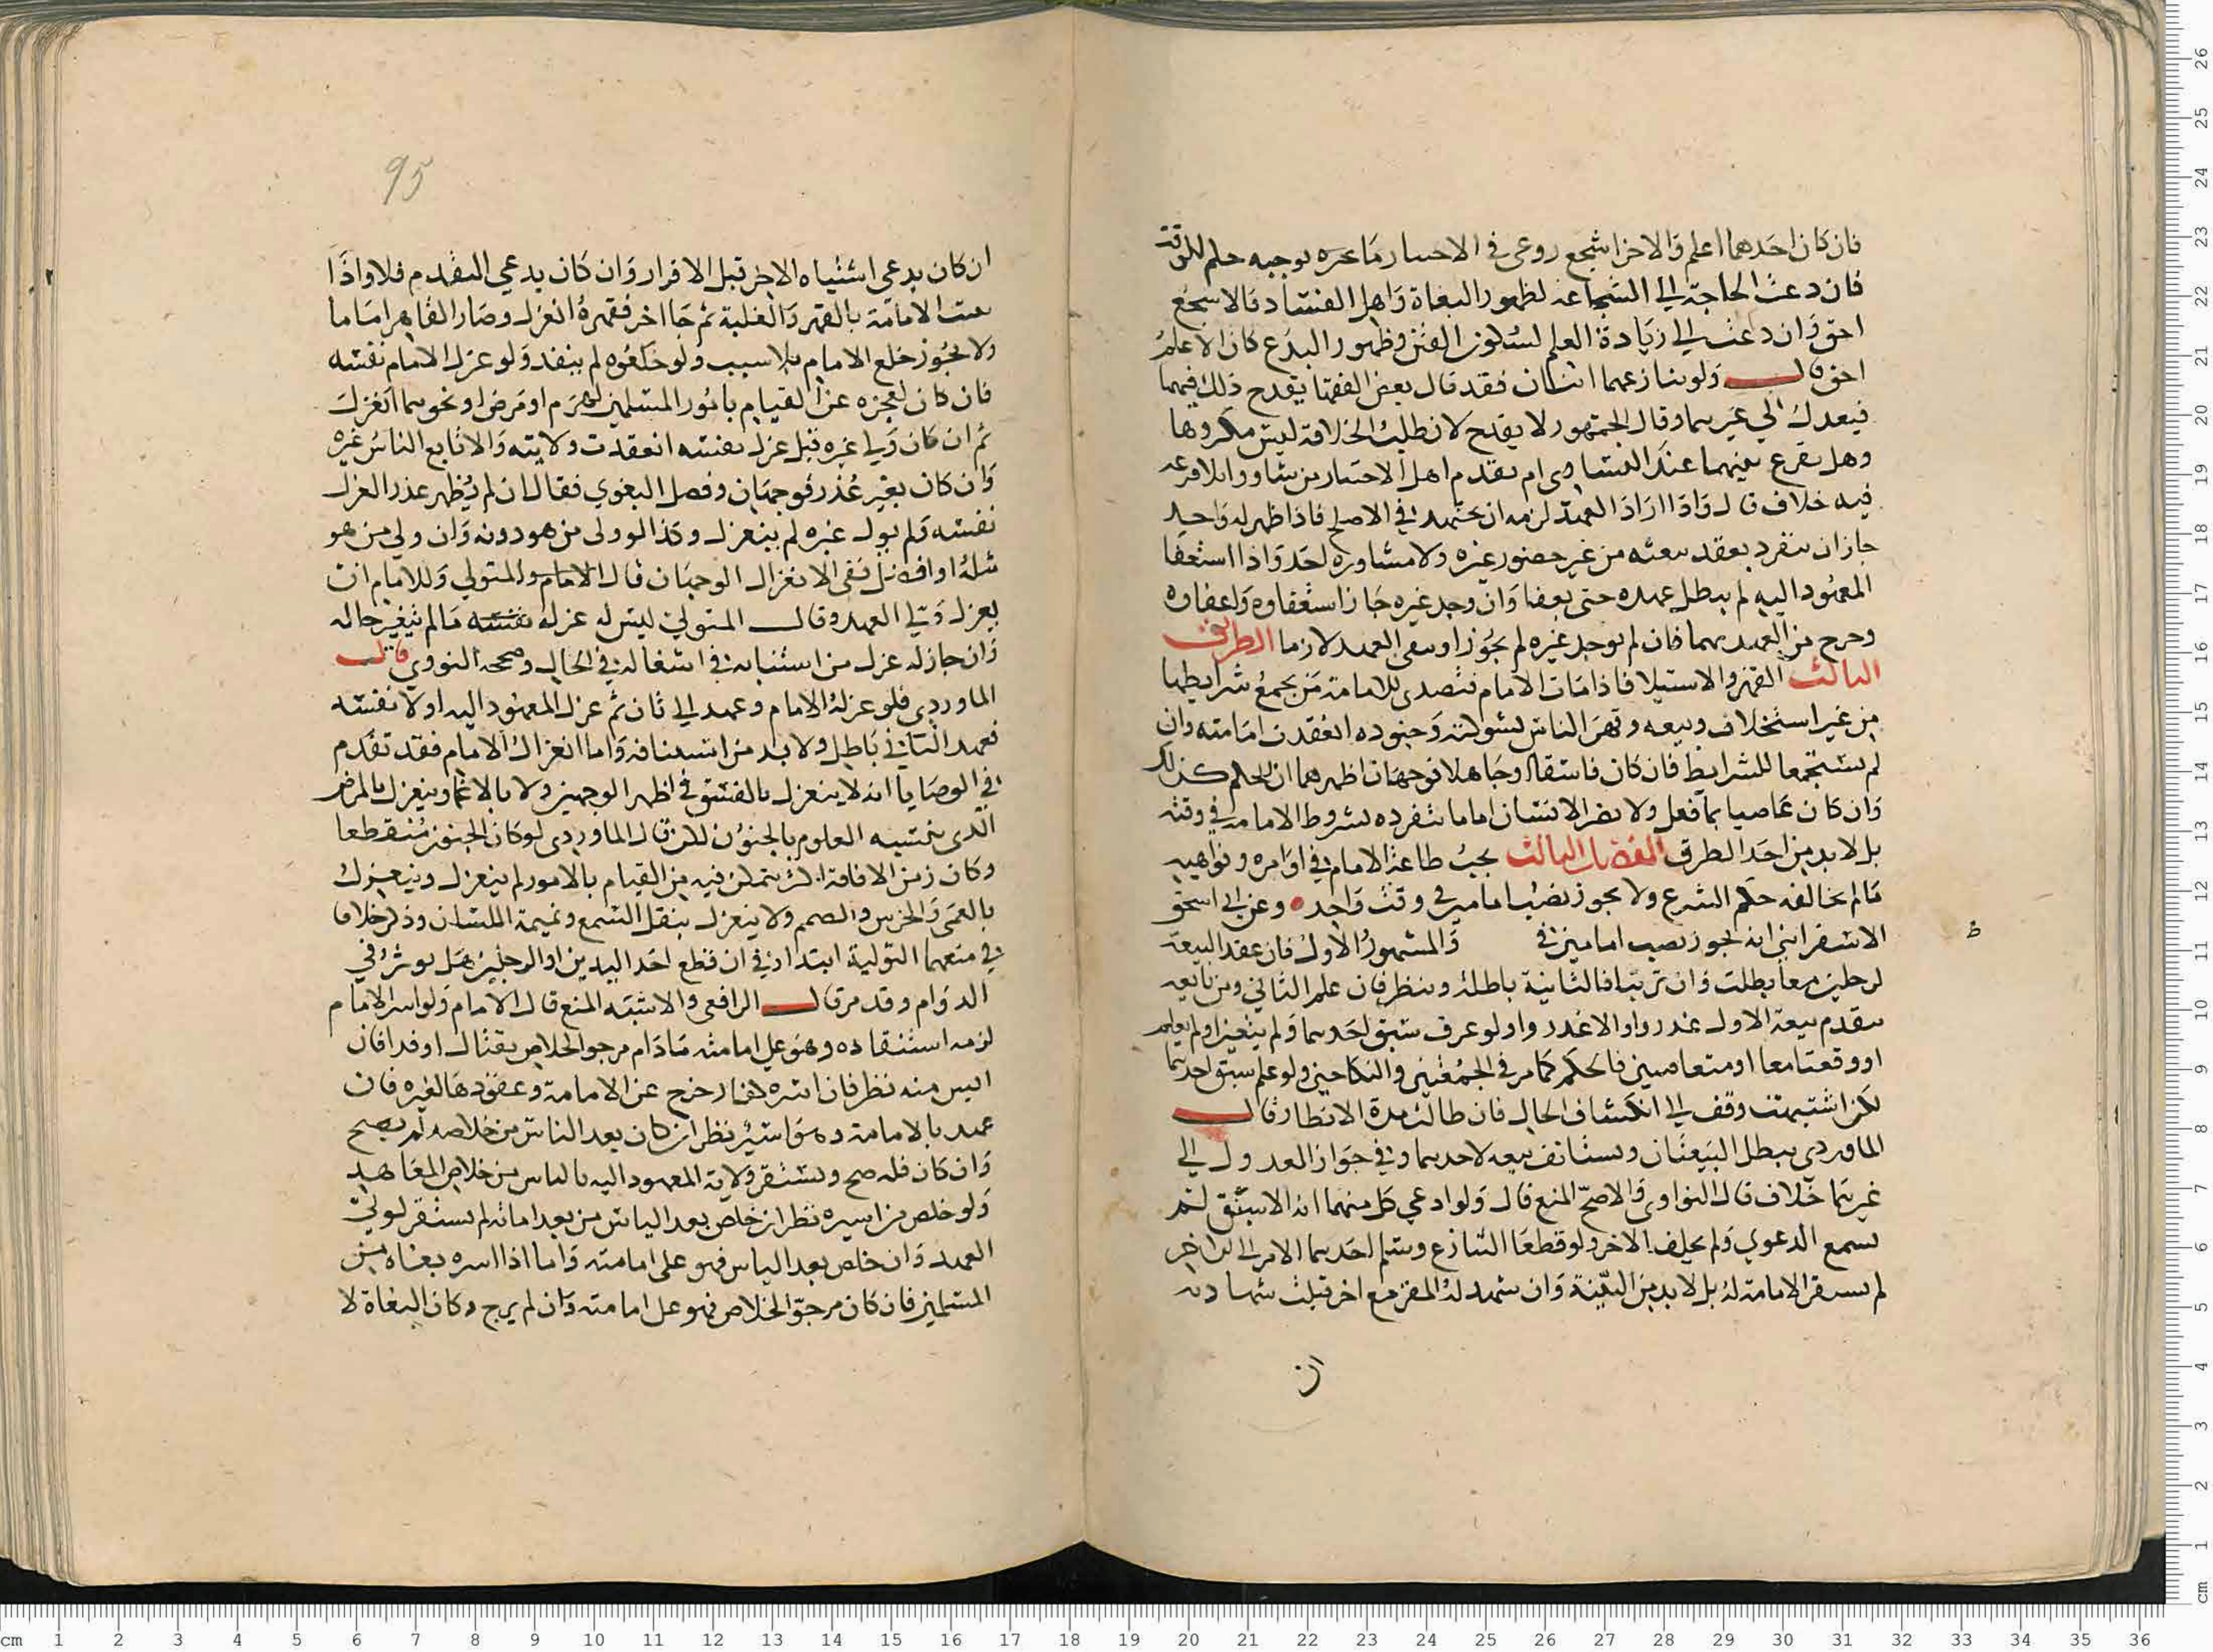 فان كان احدهما اعلم والاخر اشجع روعي في الاختيار ما عده يوجبه حكم الوقت
فان دعت الحاجة الي الشجاعة لظهور البغاة واهل الفساد فالاشجع
احق وان دعت الي زيادة العلم لسكون الفتن وظهور البدع كان الاعلم
احق قال ولو تنازعهما اثنان فقد قال بعض الفقها يقدح ذلك فيهما
فيعدل الي غيرهما وقال الجمهور لا يقدح لان طلب الخلافة ليس مكروها
وهل يقرع بينهما عند التساوي ام يقدم اهل الاختيار من شاووا بلا قرعه
فيه خلاف قال واذا اراد العهد لزمه ان يجتهد في الاصلح فاذا ظهر له واحد
جاز ان ينفرد بعقد بيعته من غير حضور غيره ولا مشاورة لحد واذا استعفا
المعهود اليه لم يبطل عهده حتى يعفا وان وجد غيره جاز استعفاوه واعفاوه
وخرج من العهد بهما فان لم يوجد غيره لم يجوزا وبقي العهد لازما الطريق
الثالث القهر والاستيلا فاذا مات الامام فتصدى للامامة من يجمع شرايطها
من غير استخلاف وبيعه وقهر الناس بشوكته وجنوده انعقدت امامته وان
لم يستجمعا للشرايط فان كان فاسقا او جاهلا فوجهان اظهرهما ان الحكم كذلك
وان كان عاصيا بما فعل ولا يصر الانسان اماما بتفرده بشروط الامامه في وقته
بل لا بد من احد الطرق الفصل الثالث يجب طاعة الامام في اوامره ونواهيه
ما لم يخالفه حكم الشرع ولا يجوز نصب امامين في وقت واحد وعن ابي اسحق
الاسفرايني انه يجوز نصب امامين في والمشهور الاول فان عقد البيعة
لرجلين معا بطلت وان ترتبا فالثانية باطلة وينظر فان علم الثاني ومن تابعه
بتقدم بيعة الاول عذروا والا عذر وا ولو عرف سبق احدهما ولم يتعين او لم يعلم
او وقعتا معا او متعاقبين فالحكم كما مر في الجمعتين والنكاحين ولو علم سبق احدهما
لكن اشتبهت وقف الي انكشاف الحال فان طالت مدة الانتظار قال
الماوردي يبطل البيعتان ويستانف بيعه لاحدهما وفي جواز العدول الي
غيرهما خلاف قال النواوي والاصح المنع قال ولو ادعي كل منهما انه الاسبق لم
يسمع الدعوي ولم يحلف الاخر ولو قطعا التنازع وسلم احدهما الامر الي الاخر
لم يستقر الامامة له بل لا بد من البينة وان شهد له المقر مع اخر قبلت شهادته
ان
ط
95
ان كان يدعي اشتباه الامر قبل الاقرار وان كان يدعي التقدم فلا واذا
ثبتت الامامة بالقهر والغلبة ثم جا اخر فقهره انعزل وصار القاهر اماما
ولا يجوز خلع الامام بلا سبب ولو خلعوه لم ينفذ ولو عزل الامام نفسه
فان كان لعجزه عن القيام بامور المسلمين لهرم او مرض او نحوهما انعزل
ثم ان كان ولي غيره قبل عزل نفسه انعقدت ولايته والا تابع الناس غيره
وان كان بغير عذر فوجهان وفصل البغوي فقال ان لم يظهر عذر العزل
نفسه ولم يول غيره لم ينعزل وكذا لو ولى من هو دونه وان ولي من هو
مثله او افضل ففي الانعزال الوجهان قال الامام والمتولي وللامام ان
يعزل ولي العهد وقال المتولي ليس له عزله نفسه ما لم يتغير حاله
وان جاز له عزل من استنابه في اشغاله في الحال وصححه النووي قال
الماوردي فلو عزله الامام وعهد الي ثان ثم عزل المعهود اليه اولا نفسه
فعهد الثاني باطل ولا بد من استينافه واما انعزال الامام فقد تقدم
في الوصايا انه لا ينعزل بالفسق في اظهر الوجهين ولا بالاغما وينعزل بالمرض
الذي ينسيه العلوم بالجنون لكن قال الماوردي لو كان الجنون منقطعا
وكان زمن الافاقة اكثر يتمكن فيه من القيام بالامور لم ينعزل وينعزل
بالعمى والخرس والصمم ولا ينعزل بثقل السمع وتميمة اللسان وذكر خلافا
في منعهما التولية ابتدا وفي ان قطع احد اليدين او الرجلين هل يوثر في
الدوام وقد مر قال الرافعي والاشبه المنع قال الامام ولو اسر الامام
لزمه استنقاذه وهو على امامته مادام مرجو الخلاص بقتال او فدا فان
ايس منه نظر فان اسره كفار خرج عن الامامة وعقدها لغيره فان
عهد بالامامة وهو اسير نظر ان كان بعد الياس من خلاصه لم يصح
وان كان قبله صح وتستقر ولاية المعهود اليه بالياس من خلاص المعاهد
ولو خلص من اسره نظر ان خلص بعد الياس من بعد امانه لم يستقر لولي
العهد وان خلص بعد الياس فهو على امامته واما اذا اسره بغاة من
المسلمين فان كان مرجو الخلاص فهو على امامته وان لم يرج وكان البغاة لا